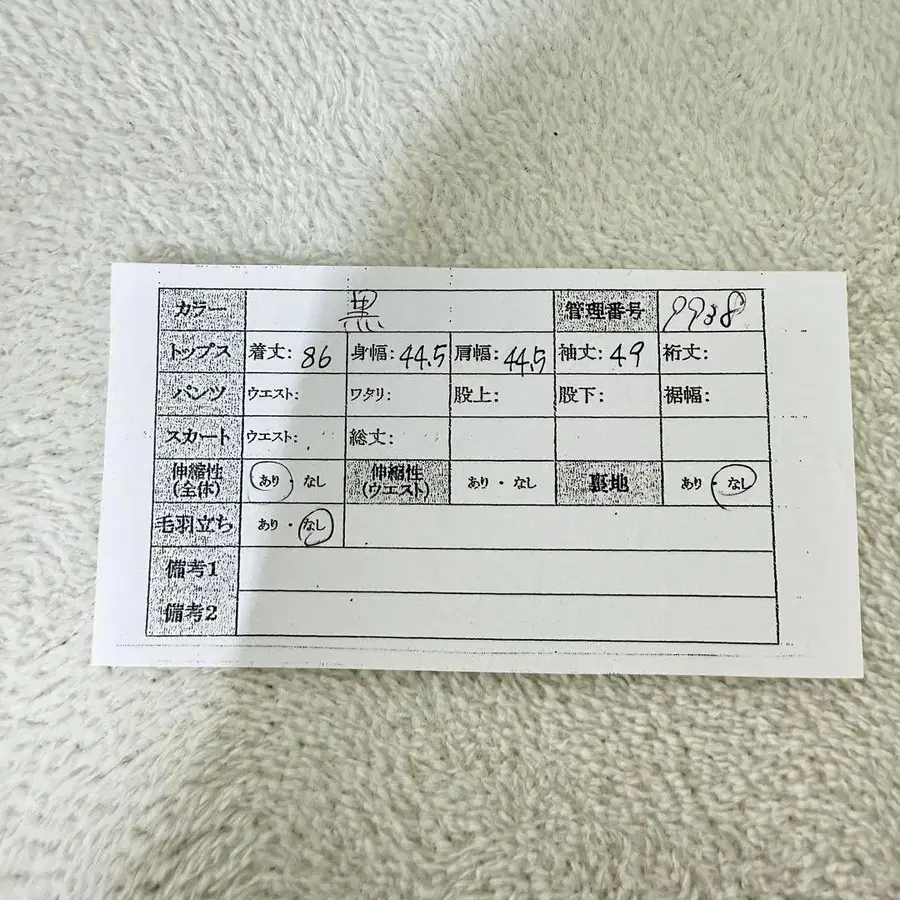 カラー 黒 管理番号 9938
トップス 着丈: 86 身幅: 44.5 肩幅: 44.5 袖丈: 49 裄丈:
パンツ ウエスト: ワタリ: 股上: 股下: 裾幅:
スカート ウエスト: 総丈:
伸縮性(全体) あり・なし 伸縮性(ウエスト) あり・なし 裏地 あり・なし
毛羽立ち あり・なし
備考1
備考2